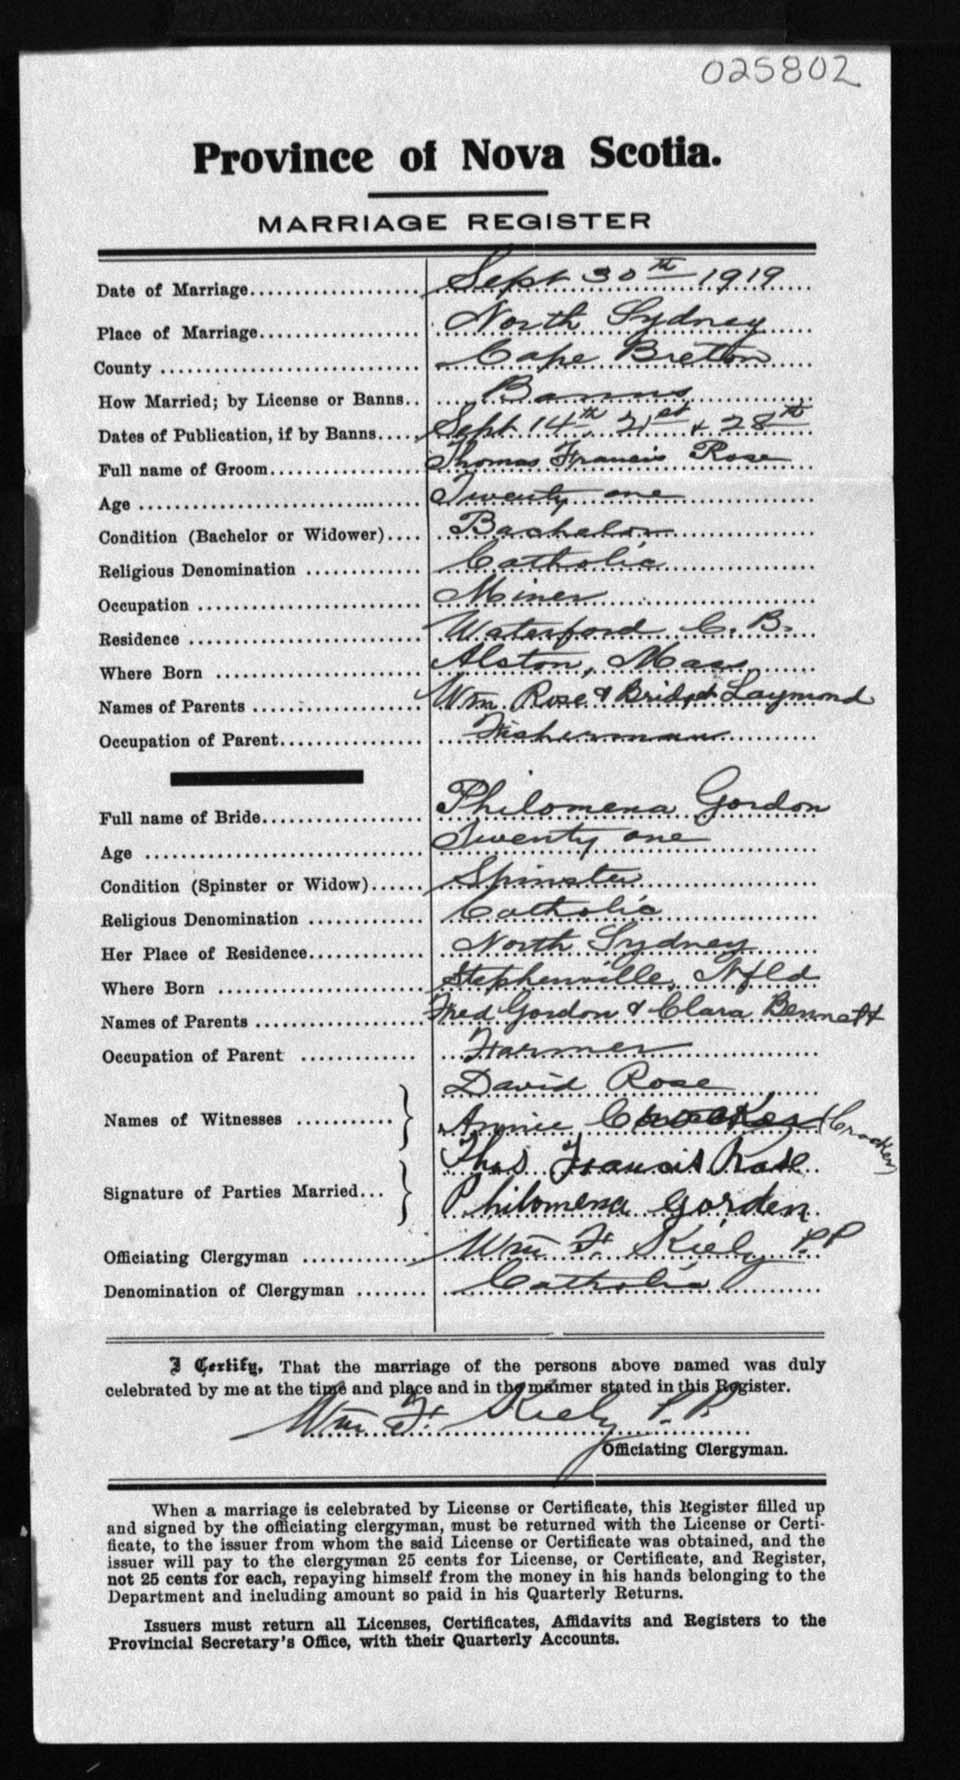 025802
Province of Nova Scotia.
MARRIAGE REGISTER
Date of Marriage.................... Sept 30th 1919
Place of Marriage................... North Sydney
County .............................. Cape Breton
How Married; by License or Banns.. Banns
Dates of Publication, if by Banns..... Sept 14th, 21st & 28th
Full name of Groom.................. Thomas Francis Rose
Age ................................. Twenty one
Condition (Bachelor or Widower).... Bachelor
Religious Denomination ............ Catholic
Occupation ......................... Miner
Residence .......................... Waterford C. B.
Where Born ....................... Alston, Mass
Names of Parents .................. Wm Rose & Bridget Laymond
Occupation of Parent................ Fisherman
Full name of Bride................... Philomena Gordon
Age ................................ Twenty one
Condition (Spinster or Widow)...... Spinster
Religious Denomination ............ Catholic
Her Place of Residence............. North Sydney
Where Born ....................... Stephenville, Nfld
Names of Parents .................. Fred Gordon & Clara Bennett
Occupation of Parent ............. Farmer
David Rose
Names of Witnesses ........... } Annie Croaker (Crocker)
Thos Francis Rose
Signature of Parties Married... } Philomena Gorden
Officiating Clergyman ............. Wm F. Kiely P.P
Denomination of Clergyman ........ Catholic
I Certify, That the marriage of the persons above named was duly
celebrated by me at the time and place and in the manner stated in this Register.
Wm F. Kiely P.P.
Officiating Clergyman.
When a marriage is celebrated by License or Certificate, this Register filled up
and signed by the officiating clergyman, must be returned with the License or Certi-
ficate, to the issuer from whom the said License or Certificate was obtained, and the
issuer will pay to the clergyman 25 cents for License, or Certificate, and Register,
not 25 cents for each, repaying himself from the money in his hands belonging to the
Department and including amount so paid in his Quarterly Returns.
Issuers must return all Licenses, Certificates, Affidavits and Registers to the
Provincial Secretary's Office, with their Quarterly Accounts.